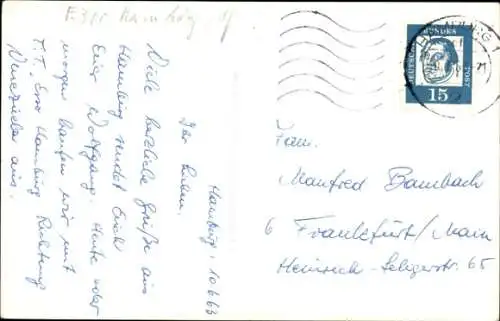 Hamburg, 10.6.63
Ihr Lieben.
Viele herzliche Grüße aus
Hamburg sendet Euch
Euer Wolfgang. Heute oder
morgen laufen wir mit
T.T. Esso Hamburg Richtung
Venezuela aus.
DEUTSCHE BUNDESPOST
15
Fam.
Manfred Bambach
6 Frankfurt/Main
Heinrich-Seligerstr. 65